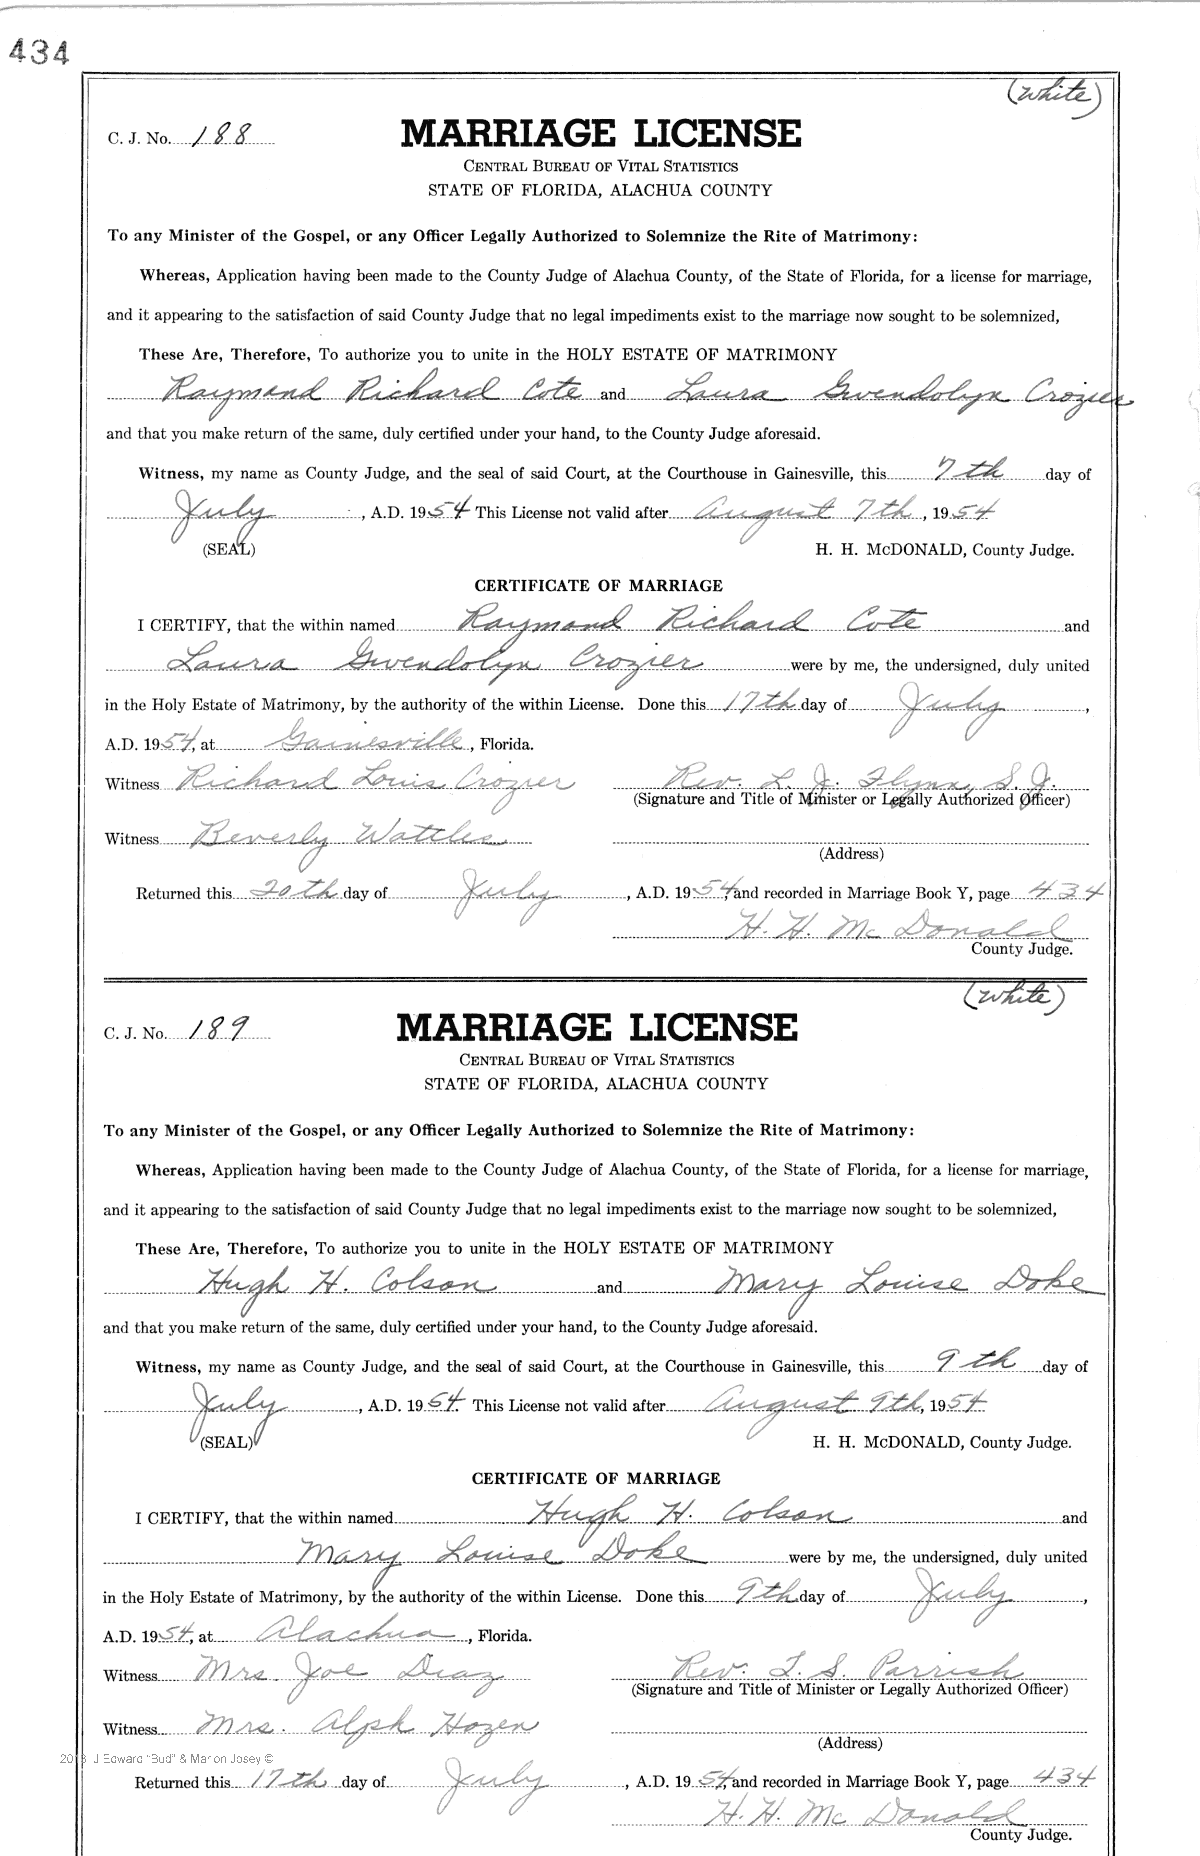 434
(White)
C. J. No. 188
MARRIAGE LICENSE
CENTRAL BUREAU OF VITAL STATISTICS
STATE OF FLORIDA, ALACHUA COUNTY
To any Minister of the Gospel, or any Officer Legally Authorized to Solemnize the Rite of Matrimony:
Whereas, Application having been made to the County Judge of Alachua County, of the State of Florida, for a license for marriage,
and it appearing to the satisfaction of said County Judge that no legal impediments exist to the marriage now sought to be solemnized,
These Are, Therefore, To authorize you to unite in the HOLY ESTATE OF MATRIMONY
Raymond Richard Cote and Laura Gwendolyn Crozier
and that you make return of the same, duly certified under your hand, to the County Judge aforesaid.
Witness, my name as County Judge, and the seal of said Court, at the Courthouse in Gainesville, this 7th day of
July, A.D. 1954 This License not valid after August 7th, 1954
(SEAL) H. H. McDONALD, County Judge.
CERTIFICATE OF MARRIAGE
I CERTIFY, that the within named Raymond Richard Cote and
Laura Gwendolyn Crozier were by me, the undersigned, duly united
in the Holy Estate of Matrimony, by the authority of the within License. Done this 17th day of July,
A.D. 1954, at Gainesville, Florida.
Witness Richard Louis Crozier Rev. L. J. Flynn, S. J.
(Signature and Title of Minister or Legally Authorized Officer)
Witness Beverly Wattles
(Address)
Returned this 20th day of July, A.D. 1954, and recorded in Marriage Book Y, page 434
H. H. McDonald
County Judge.
(White)
C. J. No. 189
MARRIAGE LICENSE
CENTRAL BUREAU OF VITAL STATISTICS
STATE OF FLORIDA, ALACHUA COUNTY
To any Minister of the Gospel, or any Officer Legally Authorized to Solemnize the Rite of Matrimony:
Whereas, Application having been made to the County Judge of Alachua County, of the State of Florida, for a license for marriage,
and it appearing to the satisfaction of said County Judge that no legal impediments exist to the marriage now sought to be solemnized,
These Are, Therefore, To authorize you to unite in the HOLY ESTATE OF MATRIMONY
Hugh H. Colson and Mary Louise Doke
and that you make return of the same, duly certified under your hand, to the County Judge aforesaid.
Witness, my name as County Judge, and the seal of said Court, at the Courthouse in Gainesville, this 9th day of
July, A.D. 1954. This License not valid after August 9th, 1954
(SEAL) H. H. McDONALD, County Judge.
CERTIFICATE OF MARRIAGE
I CERTIFY, that the within named Hugh H. Colson and
Mary Louise Doke were by me, the undersigned, duly united
in the Holy Estate of Matrimony, by the authority of the within License. Done this 9th day of July,
A.D. 1954, at Alachua, Florida.
Witness Mrs. Joe Diaz Rev. T. S. Parrish
(Signature and Title of Minister or Legally Authorized Officer)
Witness Mrs. Alph Hozen
(Address)
2013 J Edward "Bud" & Marion Josey ©
Returned this 17th day of July, A.D. 1954, and recorded in Marriage Book Y, page 434
H. H. McDonald
County Judge.